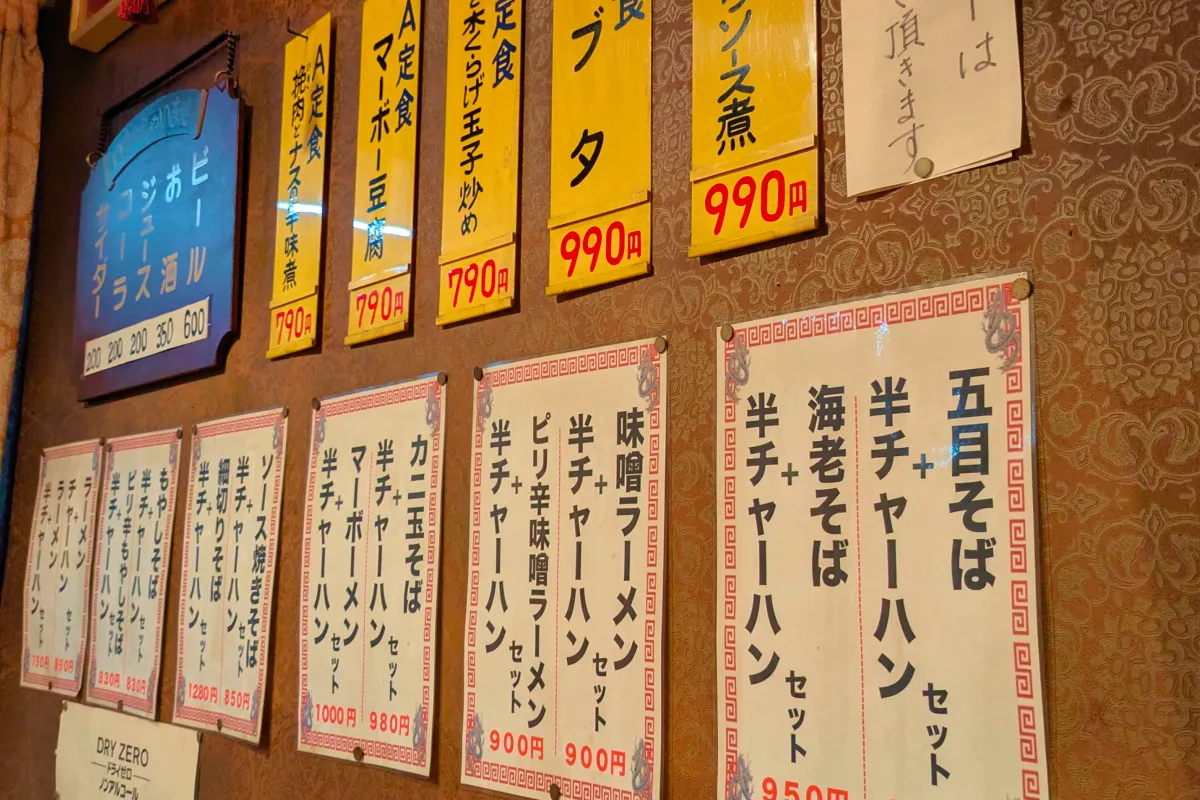 ビール
お酒
ジュース
コーラ
サイダー
200 200 200 350 600
A定食
挽肉とナスの辛味煮
790円
A定食
マーボー豆腐
790円
定食
木くらげ玉子炒め
790円
食
ブタ
990円
ソース煮
990円
ーは
頂きます
五目そば
+
半チャーハン
セット
海老そば
+
半チャーハン
セット
950円
味噌ラーメン
+
半チャーハン
セット
900円
ピリ辛味噌ラーメン
+
半チャーハン
セット
900円
カニ玉そば
+
半チャーハン
セット
980円
マーボーメン
+
半チャーハン
セット
1000円
ソース焼きそば
+
半チャーハン
セット
850円
細切りそば
+
半チャーハン
セット
1280円
もやしそば
+
半チャーハン
セット
830円
ピリ辛もやしそば
+
半チャーハン
セット
830円
ラーメン
チャーハン
セット
850円
ラーメン
+
半チャーハン
セット
750円
DRY ZERO
ドライゼロ
ノンアルコール